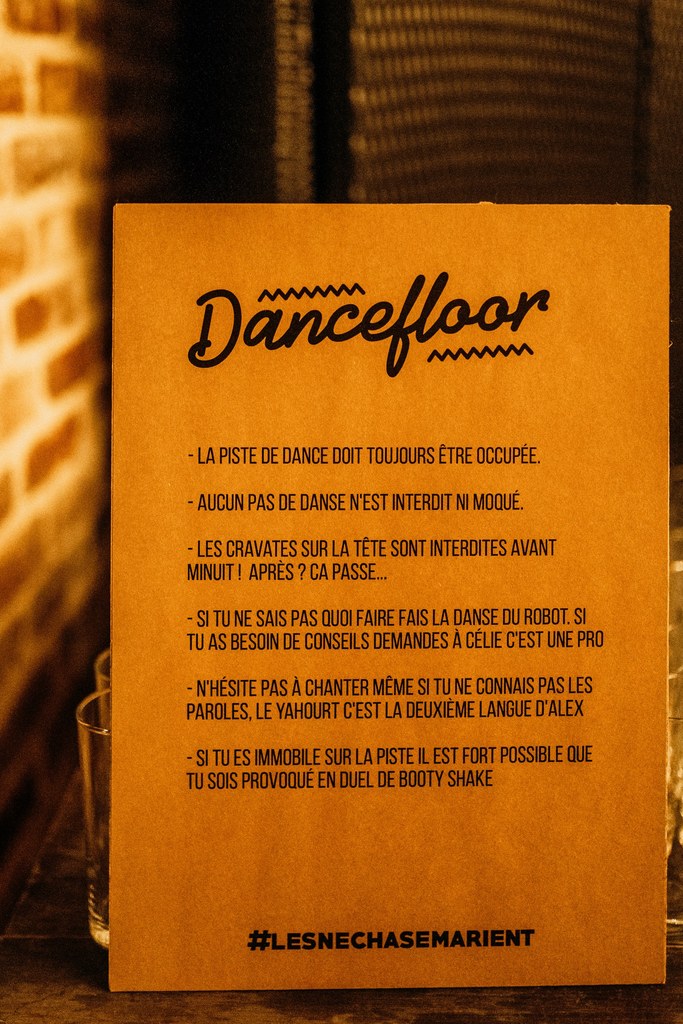 Dancefloor
- LA PISTE DE DANCE DOIT TOUJOURS ÊTRE OCCUPÉE.
- AUCUN PAS DE DANSE N'EST INTERDIT NI MOQUÉ.
- LES CRAVATES SUR LA TÊTE SONT INTERDITES AVANT
MINUIT ! APRÈS ? CA PASSE...
- SI TU NE SAIS PAS QUOI FAIRE FAIS LA DANSE DU ROBOT. SI
TU AS BESOIN DE CONSEILS DEMANDES À CÉLIE C'EST UNE PRO
- N'HÉSITE PAS À CHANTER MÊME SI TU NE CONNAIS PAS LES
PAROLES, LE YAHOURT C'EST LA DEUXIÈME LANGUE D'ALEX
- SI TU ES IMMOBILE SUR LA PISTE IL EST FORT POSSIBLE QUE
TU SOIS PROVOQUÉ EN DUEL DE BOOTY SHAKE
#LESNECHASEMARIENT